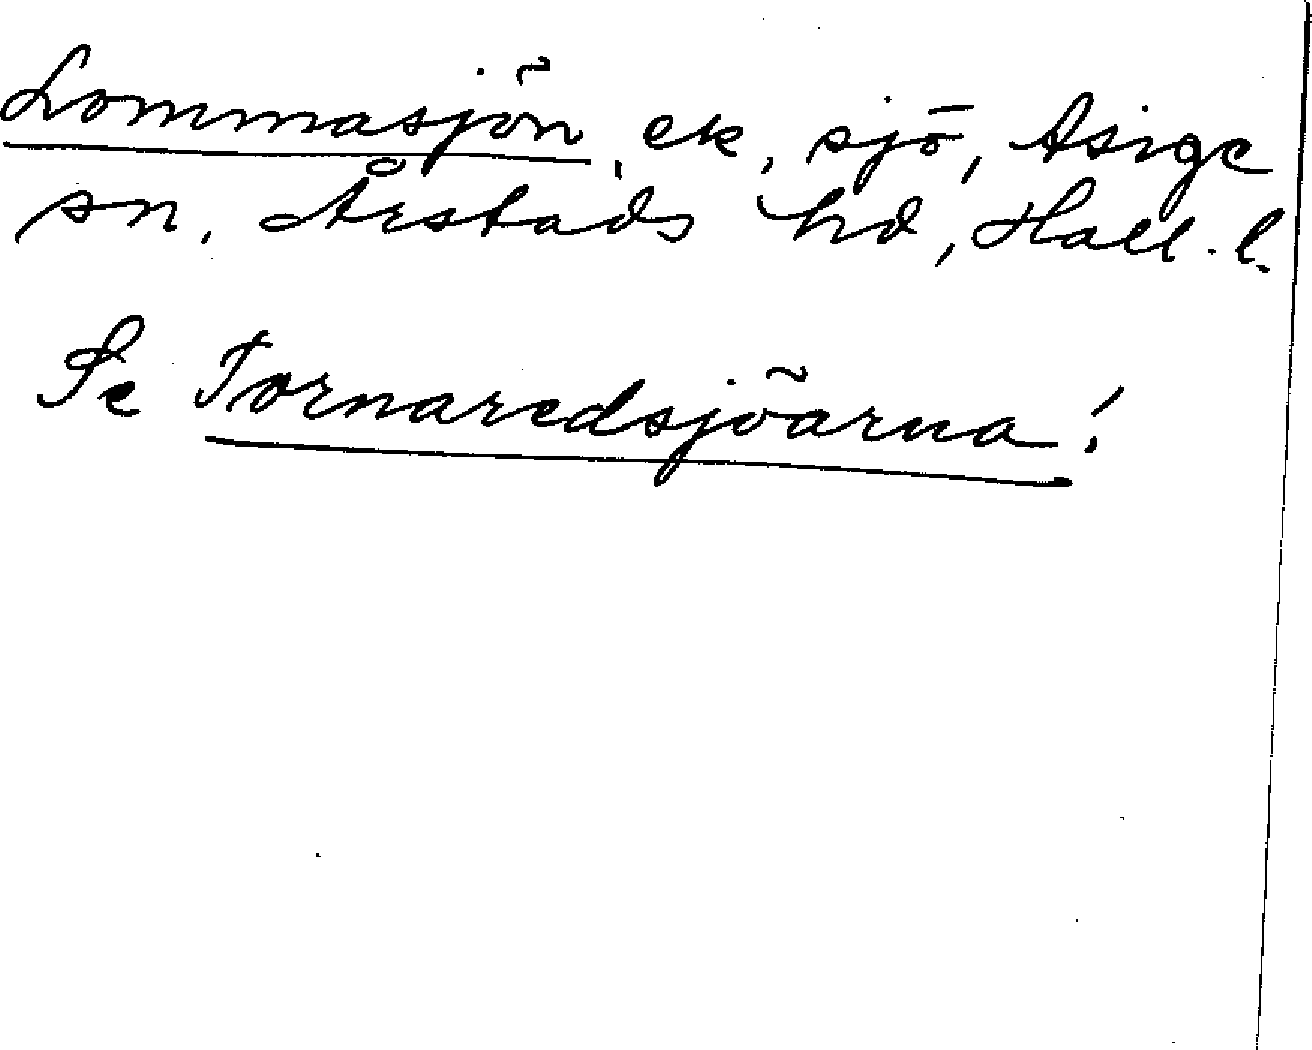 Lommasjön, ek, sjö, Asige
sn, Årstads hd, Hall. l.
Se Tornaredsjöarna!